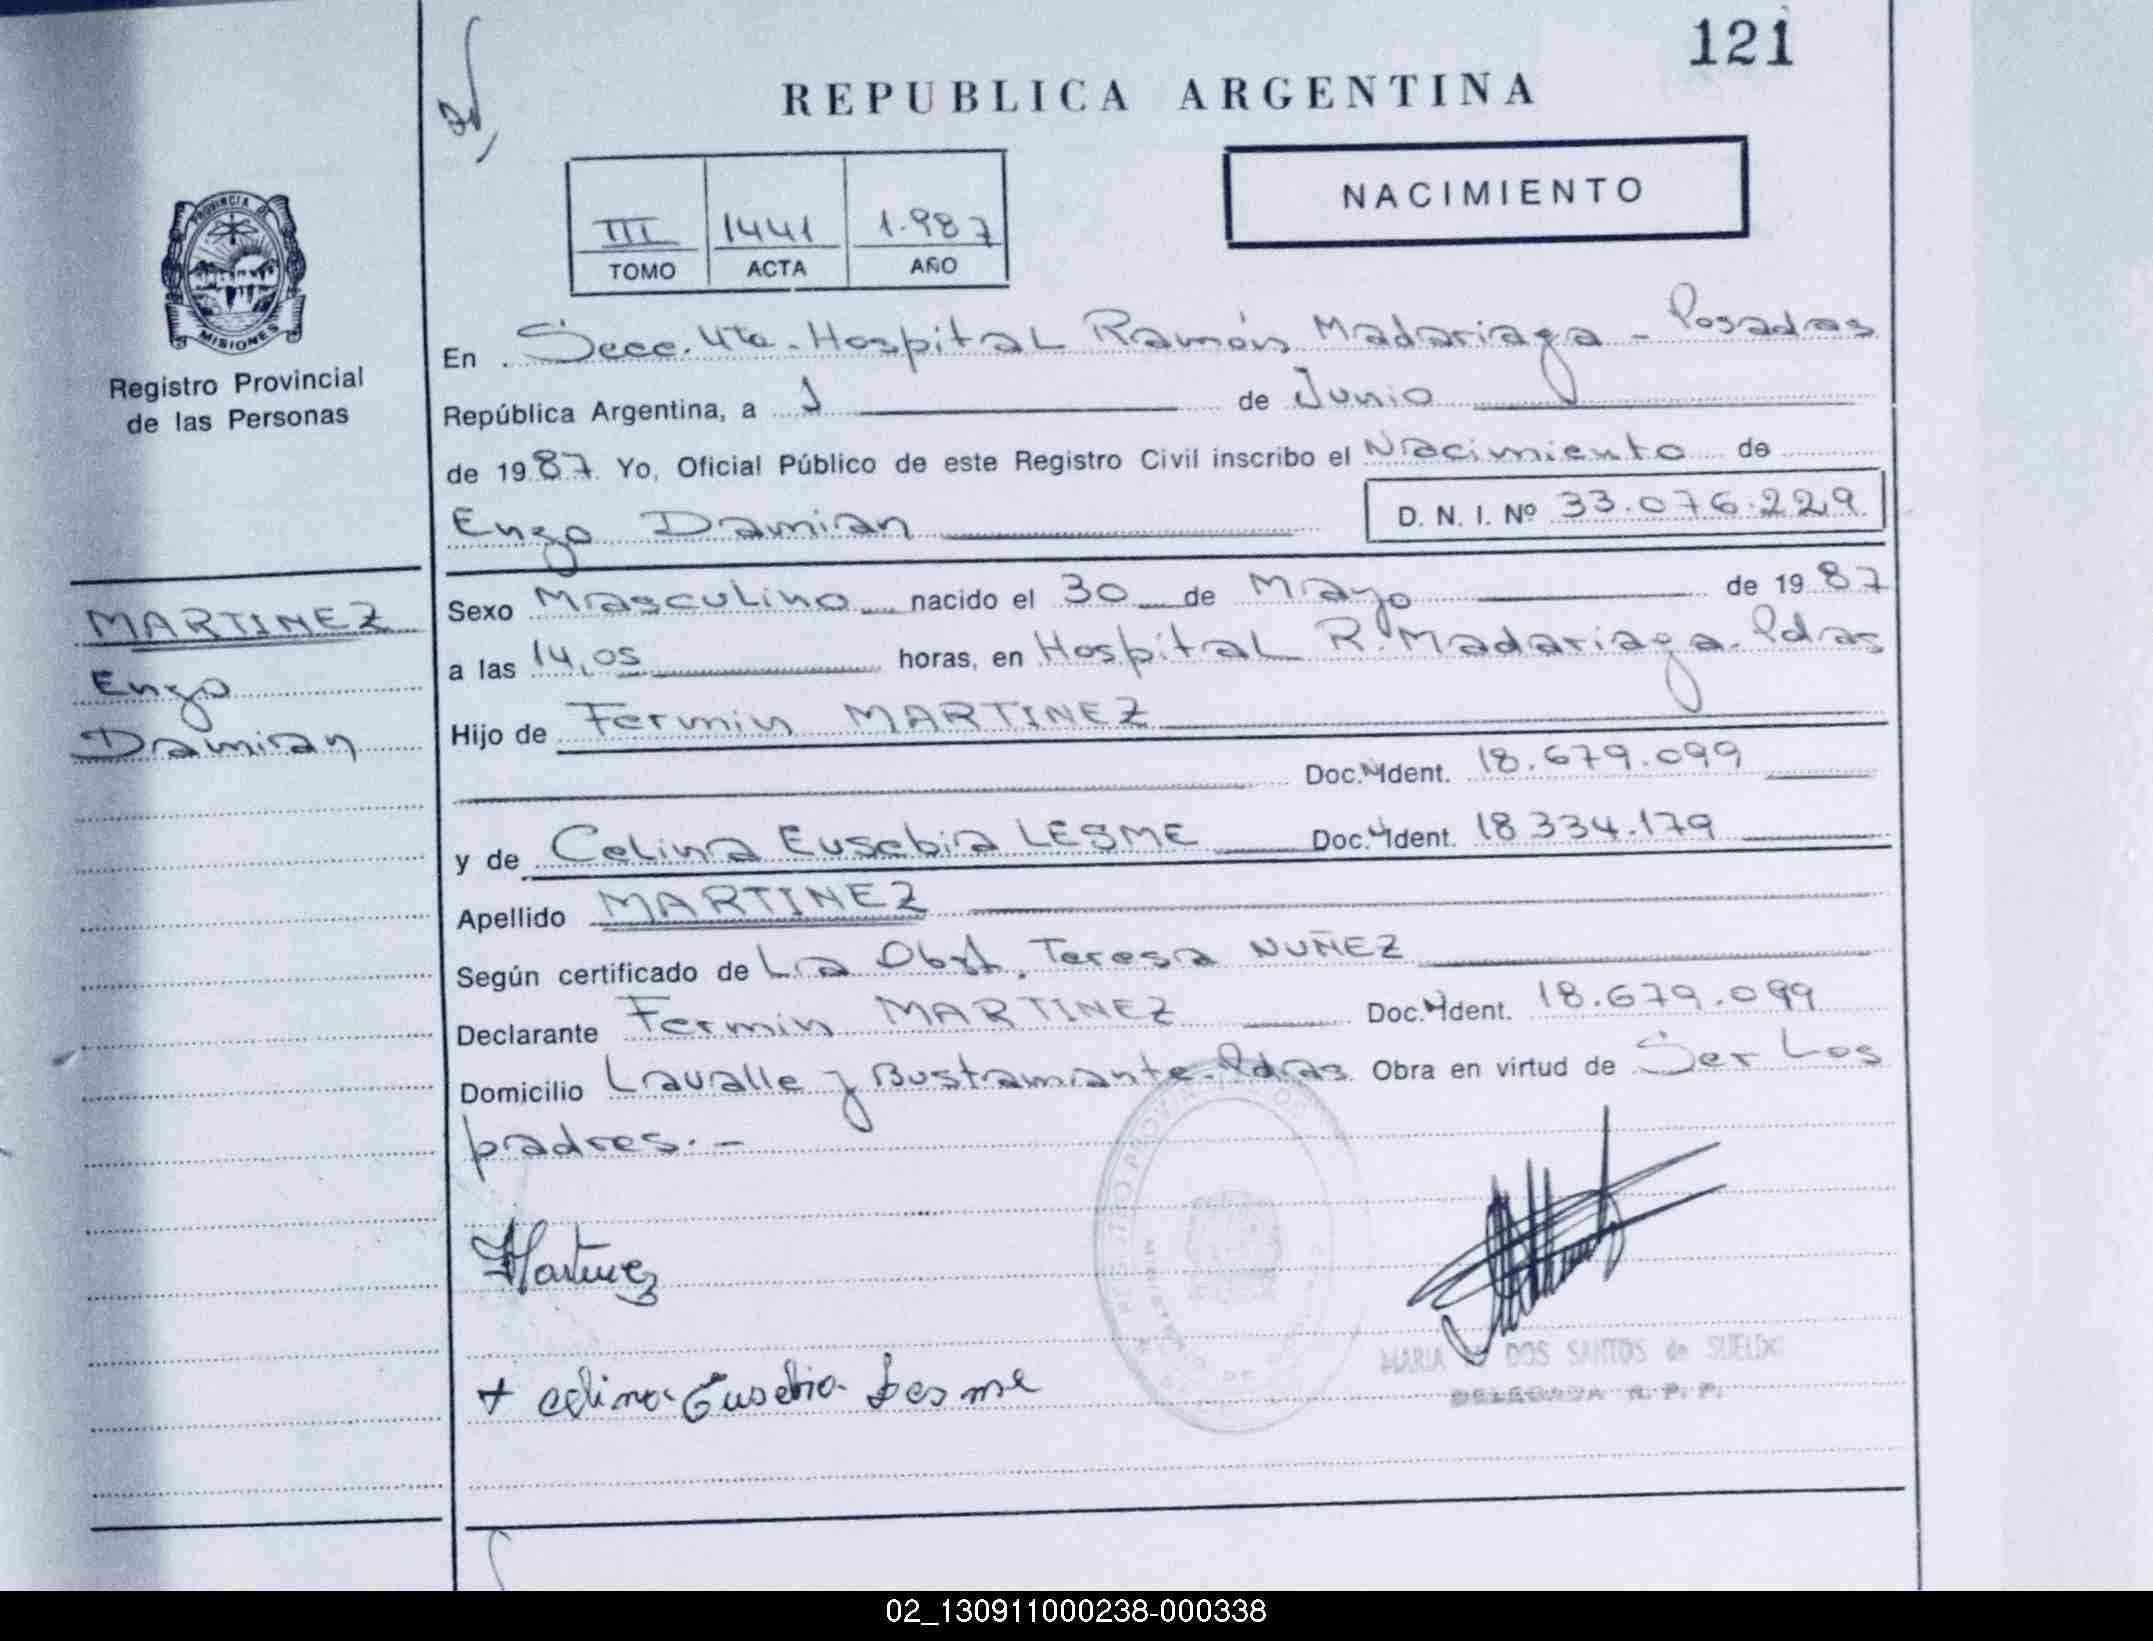 121
REPUBLICA ARGENTINA
NACIMIENTO
III 1441 1.987
TOMO ACTA AÑO
PROVINCIA DE
MISIONES
Registro Provincial
de las Personas
MARTINEZ
Enzo
Damian
En Secc. 4ta. Hospital Ramón Madariaga - Posadas
República Argentina, a 1 de Junio
de 1987. Yo, Oficial Público de este Registro Civil inscribo el Nacimiento de
Enzo Damian D. N. I. Nº 33.076.229
Sexo Masculino nacido el 30 de Mayo de 1987
a las 14,05 horas, en Hospital R. Madariaga. Pdas
Hijo de Fermin MARTINEZ
Doc. Ident. 18.679.099
y de Celina Eusebia LESME Doc. Ident. 18.334.179
Apellido MARTINEZ
Según certificado de La Obst. Teresa NUÑEZ
Declarante Fermin MARTINEZ Doc. Ident. 18.679.099
Domicilio Lavalle y Bustamante. Pdas Obra en virtud de Ser Los
padres. -
Martinez
+ celina Eusebia Lesme
MARIA DOS SANTOS de SUELDO
DELEGADA R. P. P.
02_130911000238-000338